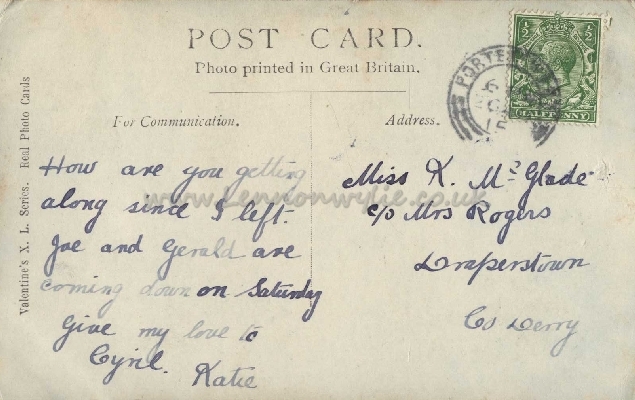 POST CARD.
Photo printed in Great Britain.
For Communication.
Address.
Valentine's X. L. Series. Real Photo Cards
How are you getting
along since I left.
Joe and Gerald are
coming down on Saturday
Give my love to
Cyril. Katie
Miss K. Mc Glade
c/o Mrs Rogers
Draperstown
Co Derry
www.lennonwylie.co.uk
HALFPENNY
½ ½